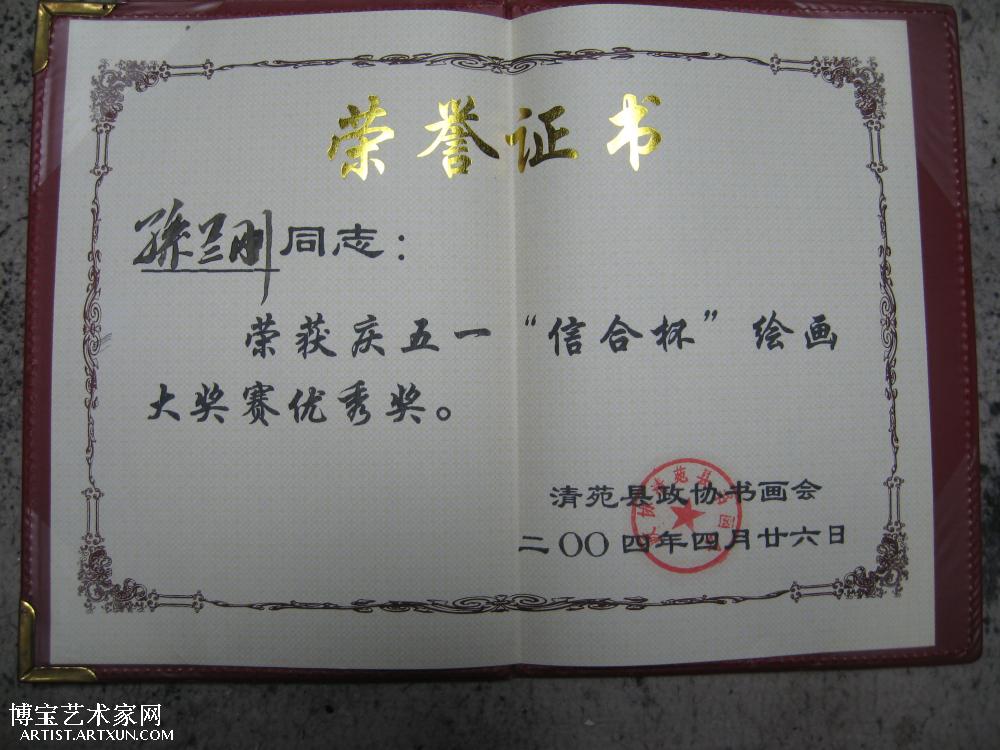 荣誉证书
孫兰刚同志：
荣获庆五一“信合杯”绘画
大奖赛优秀奖。
清苑县政协书画会
二〇〇四年四月廿六日
博宝艺术家网
ARTIST.ARTXUN.COM